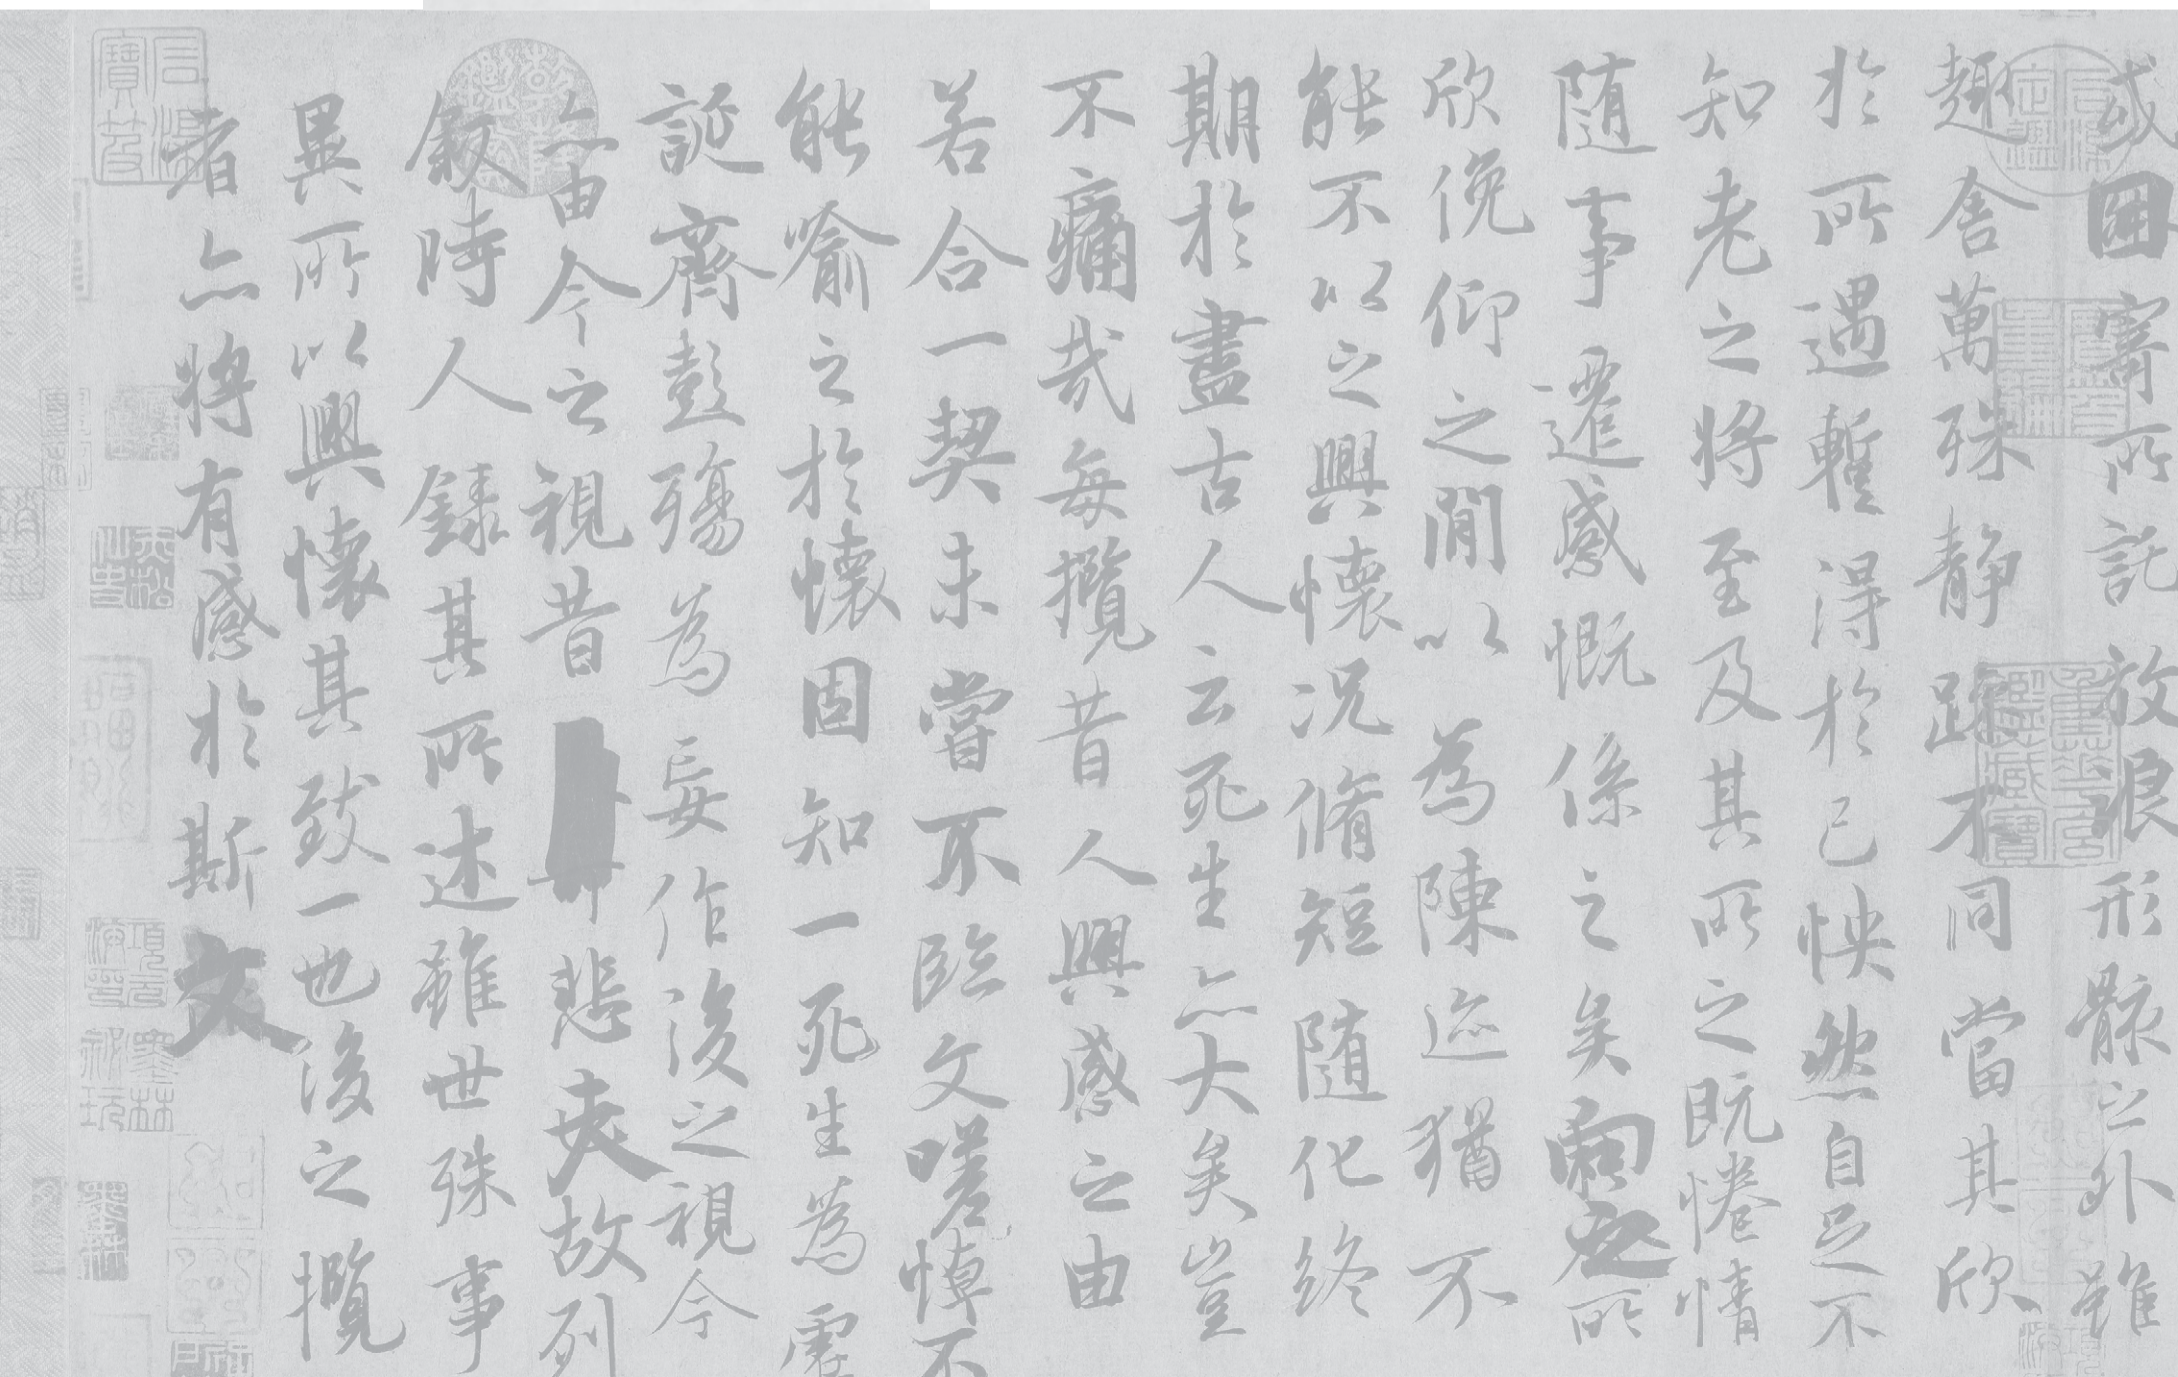 或因寄所託放浪形骸之外雖
趣舍萬殊静躁不同當其欣
於所遇蹔得於己怏然自足不
知老之将至及其所之既惓情
随事遷感慨係之矣向之所
欣俛仰之閒以為陳迹猶不
能不以之興懷况脩短随化終
期於盡古人云死生亦大矣豈
不痛哉每攬昔人興感之由
若合一契未嘗不臨文嗟悼不
能喻之於懷固知一死生為虛
誕齊彭殤為妄作後之視今
亦由今之視昔悲夫故列
敘時人録其所述雖世殊事
異所以興懷其致一也後之攬
者亦将有感於斯文